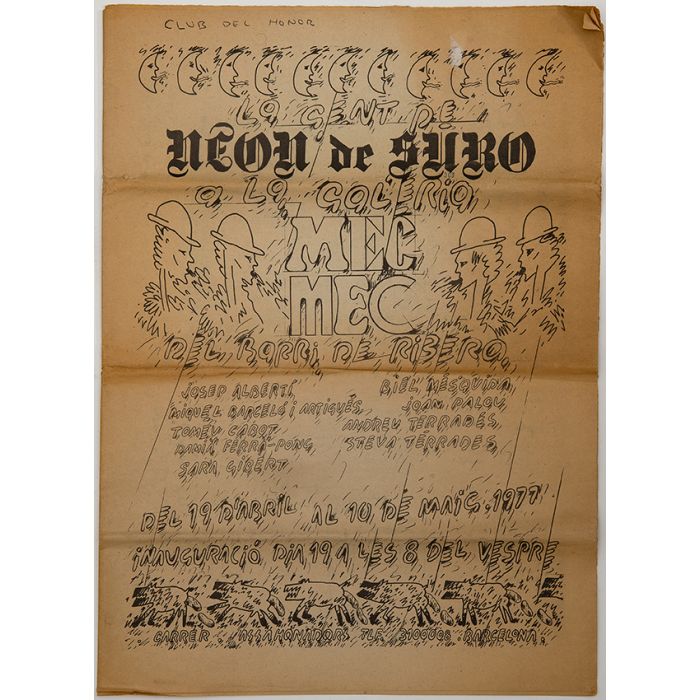 CLUB DEL HONOR
LA GENT DE
NEON de SURO
A LA GALERIA
MEC
MEC
DEL BARRI DE RIBERA
JOSEP ALBERTÍ,
MIQUEL BARCELÓ I ARTIGUÉS,
TOMEU CABOT
DAMIÀ FERRÀ-PONÇ,
SARA GIBERT
BIEL MESQUIDA,
JOAN PALOU,
ANDREU TERRADES,
STEVA TERRADES,
DEL 19 D'ABRIL AL 10 DE MAIG, 1977
INAUGURACIÓ DIA 19 A LES 8 DEL VESPRE
CARRER ASSAHONADORS TLF. 3100008 BARCELONA.